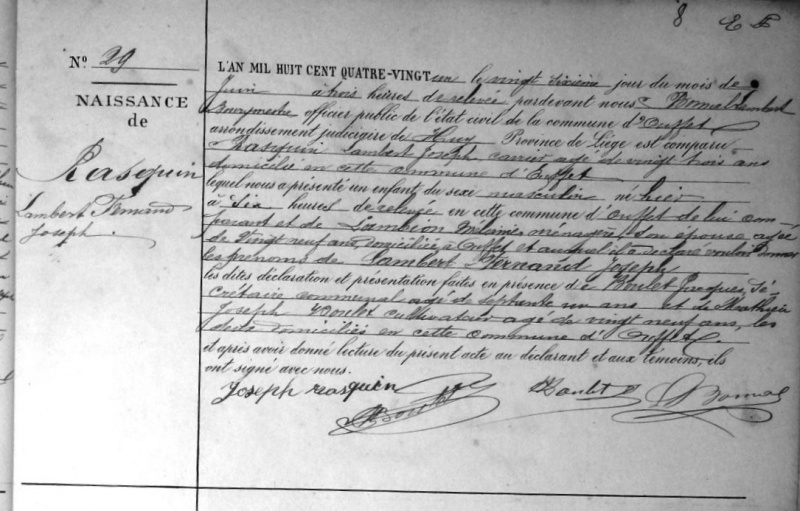 8
N° 29
NAISSANCE
de
Rasquin
Lambert Fernand
Joseph.
L'AN MIL HUIT CENT QUATRE-VINGT un le vingt sixième jour du mois de
Juin à trois heures de relevée pardevant nous Bomal Lambert
Bourgmestre officier public de l'état civil de la commune d'Ouffet
arrondissement judiciaire de Huy Province de Liége est comparu
Rasquin Lambert Joseph, carrier agé de vingt trois ans
domicilié en cette commune d'Ouffet
lequel nous a présenté un enfant du sexe masculin né hier
à dix heures de relevée en cette commune d'Ouffet de lui com-
parant et de Lambion ménagère, son épouse agée
de vingt neuf ans domiciliée à Ouffet et auquel il a déclaré vouloir donner
les prénoms de Lambert Fernand Joseph
les dites déclaration et présentation faites en présence de Boulet Jacques, Sé-
crétaire communal agé de septante un ans et de Mathieu
Joseph Doulet cultivateur agé de vingt neuf ans, les
deux domiciliés en cette commune d'Ouffet.
et après avoir donné lecture du présent acte au déclarant et aux témoins, ils
ont signé avec nous.
Joseph rasquin
Bomal